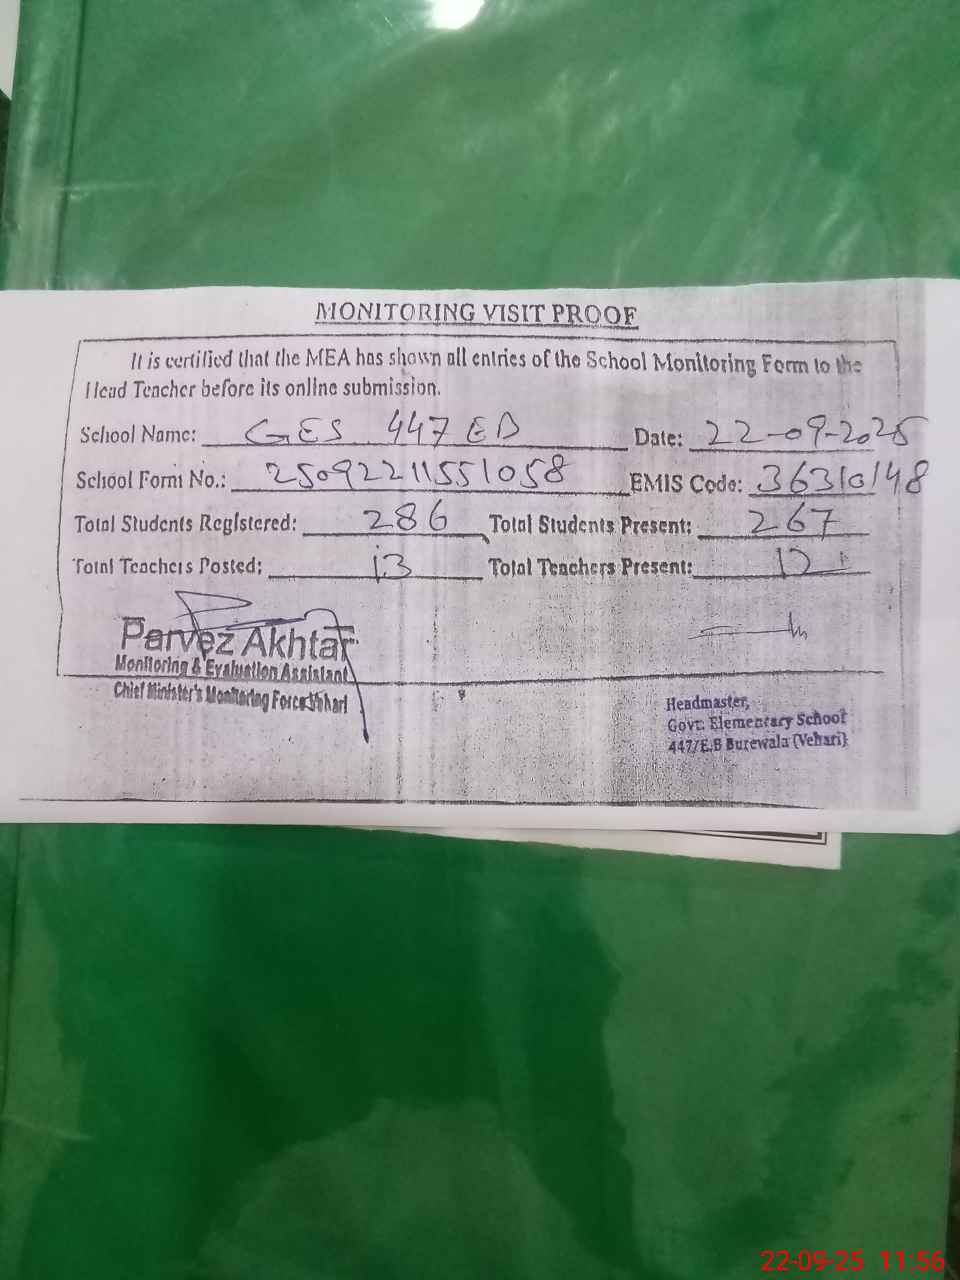 MONITORING VISIT PROOF
It is certified that the MEA has shown all entries of the School Monitoring Form to the
Head Teacher before its online submission.
School Name: GES 447 EB Date: 22-09-2025
School Form No.: 25092211551058 EMIS Code: 36310148
Total Students Registered: 286 Total Students Present: 267
Total Teachers Posted: 13 Total Teachers Present: 12
Parvez Akhtar
Monitoring & Evaluation Assistant
Chief Minister's Monitoring Force Vehari
Headmaster,
Govt. Elementary School
447/E.B Burewala (Vehari)
22-09-25 11:56